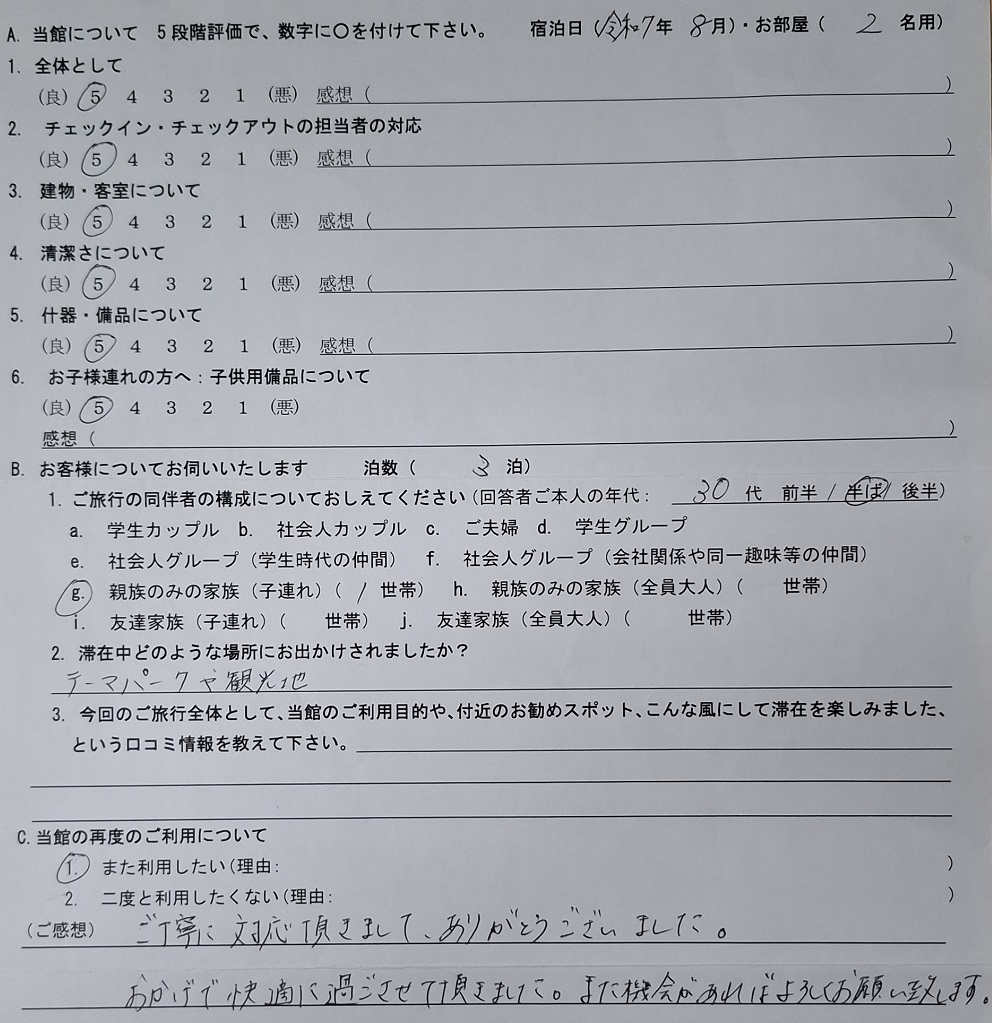 A. 当館について　5段階評価で、数字に〇を付けて下さい。　宿泊日（令和7年 8月）・お部屋（ 2 名用）
1. 全体として
（良） 5 4 3 2 1 （悪） 感想（　）
2. チェックイン・チェックアウトの担当者の対応
（良） 5 4 3 2 1 （悪） 感想（　）
3. 建物・客室について
（良） 5 4 3 2 1 （悪） 感想（　）
4. 清潔さについて
（良） 5 4 3 2 1 （悪） 感想（　）
5. 什器・備品について
（良） 5 4 3 2 1 （悪） 感想（　）
6. お子様連れの方へ：子供用備品について
（良） 5 4 3 2 1 （悪）
感想（　）
B. お客様についてお伺いいたします　泊数（ 3 泊）
1. ご旅行の同伴者の構成についておしえてください（回答者ご本人の年代： 30 代 前半 / 半ば/ 後半）
a. 学生カップル b. 社会人カップル c. ご夫婦 d. 学生グループ
e. 社会人グループ（学生時代の仲間） f. 社会人グループ（会社関係や同一趣味等の仲間）
g. 親族のみの家族（子連れ）（ 1 世帯） h. 親族のみの家族（全員大人）（　世帯）
i. 友達家族（子連れ）（　世帯） j. 友達家族（全員大人）（　世帯）
2. 滞在中どのような場所にお出かけされましたか？
テーマパークや観光地
3. 今回のご旅行全体として、当館のご利用目的や、付近のお勧めスポット、こんな風にして滞在を楽しみました、
という口コミ情報を教えて下さい。
C. 当館の再度のご利用について
1. また利用したい（理由：　）
2. 二度と利用したくない（理由：　）
（ご感想） ご丁寧に対応頂きまして、ありがとうございました。
おかげで快適に過ごさせて頂きました。また機会があればよろしくお願い致します。